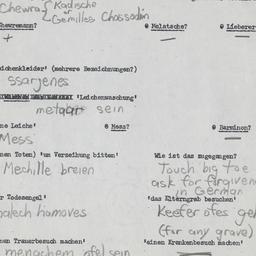 Chewra { Kadische
or
Gemilles Chossodim
hewremann? @ Melatsche? @ Lieferer
+
eichenkleider' (mehrere Bezeichnungen?)
ssarjenes
'Leichenwaschung'
metaart sein
ne Leiche' @ Mess? @ Barminon?
Mess
nen Toten) 'um Verzeihung bitten' Wie ist das zugegangen?
Mechille breien Touch big toe
ask for forgiveness
in German
r Todesengel' 'das Elterngrab besuchen'
molech hamoves Keefer ofes geh
(for any grave)
nen Trauerbesuch machen' 'einen Krankenbesuch machen'
menachem ofel sein